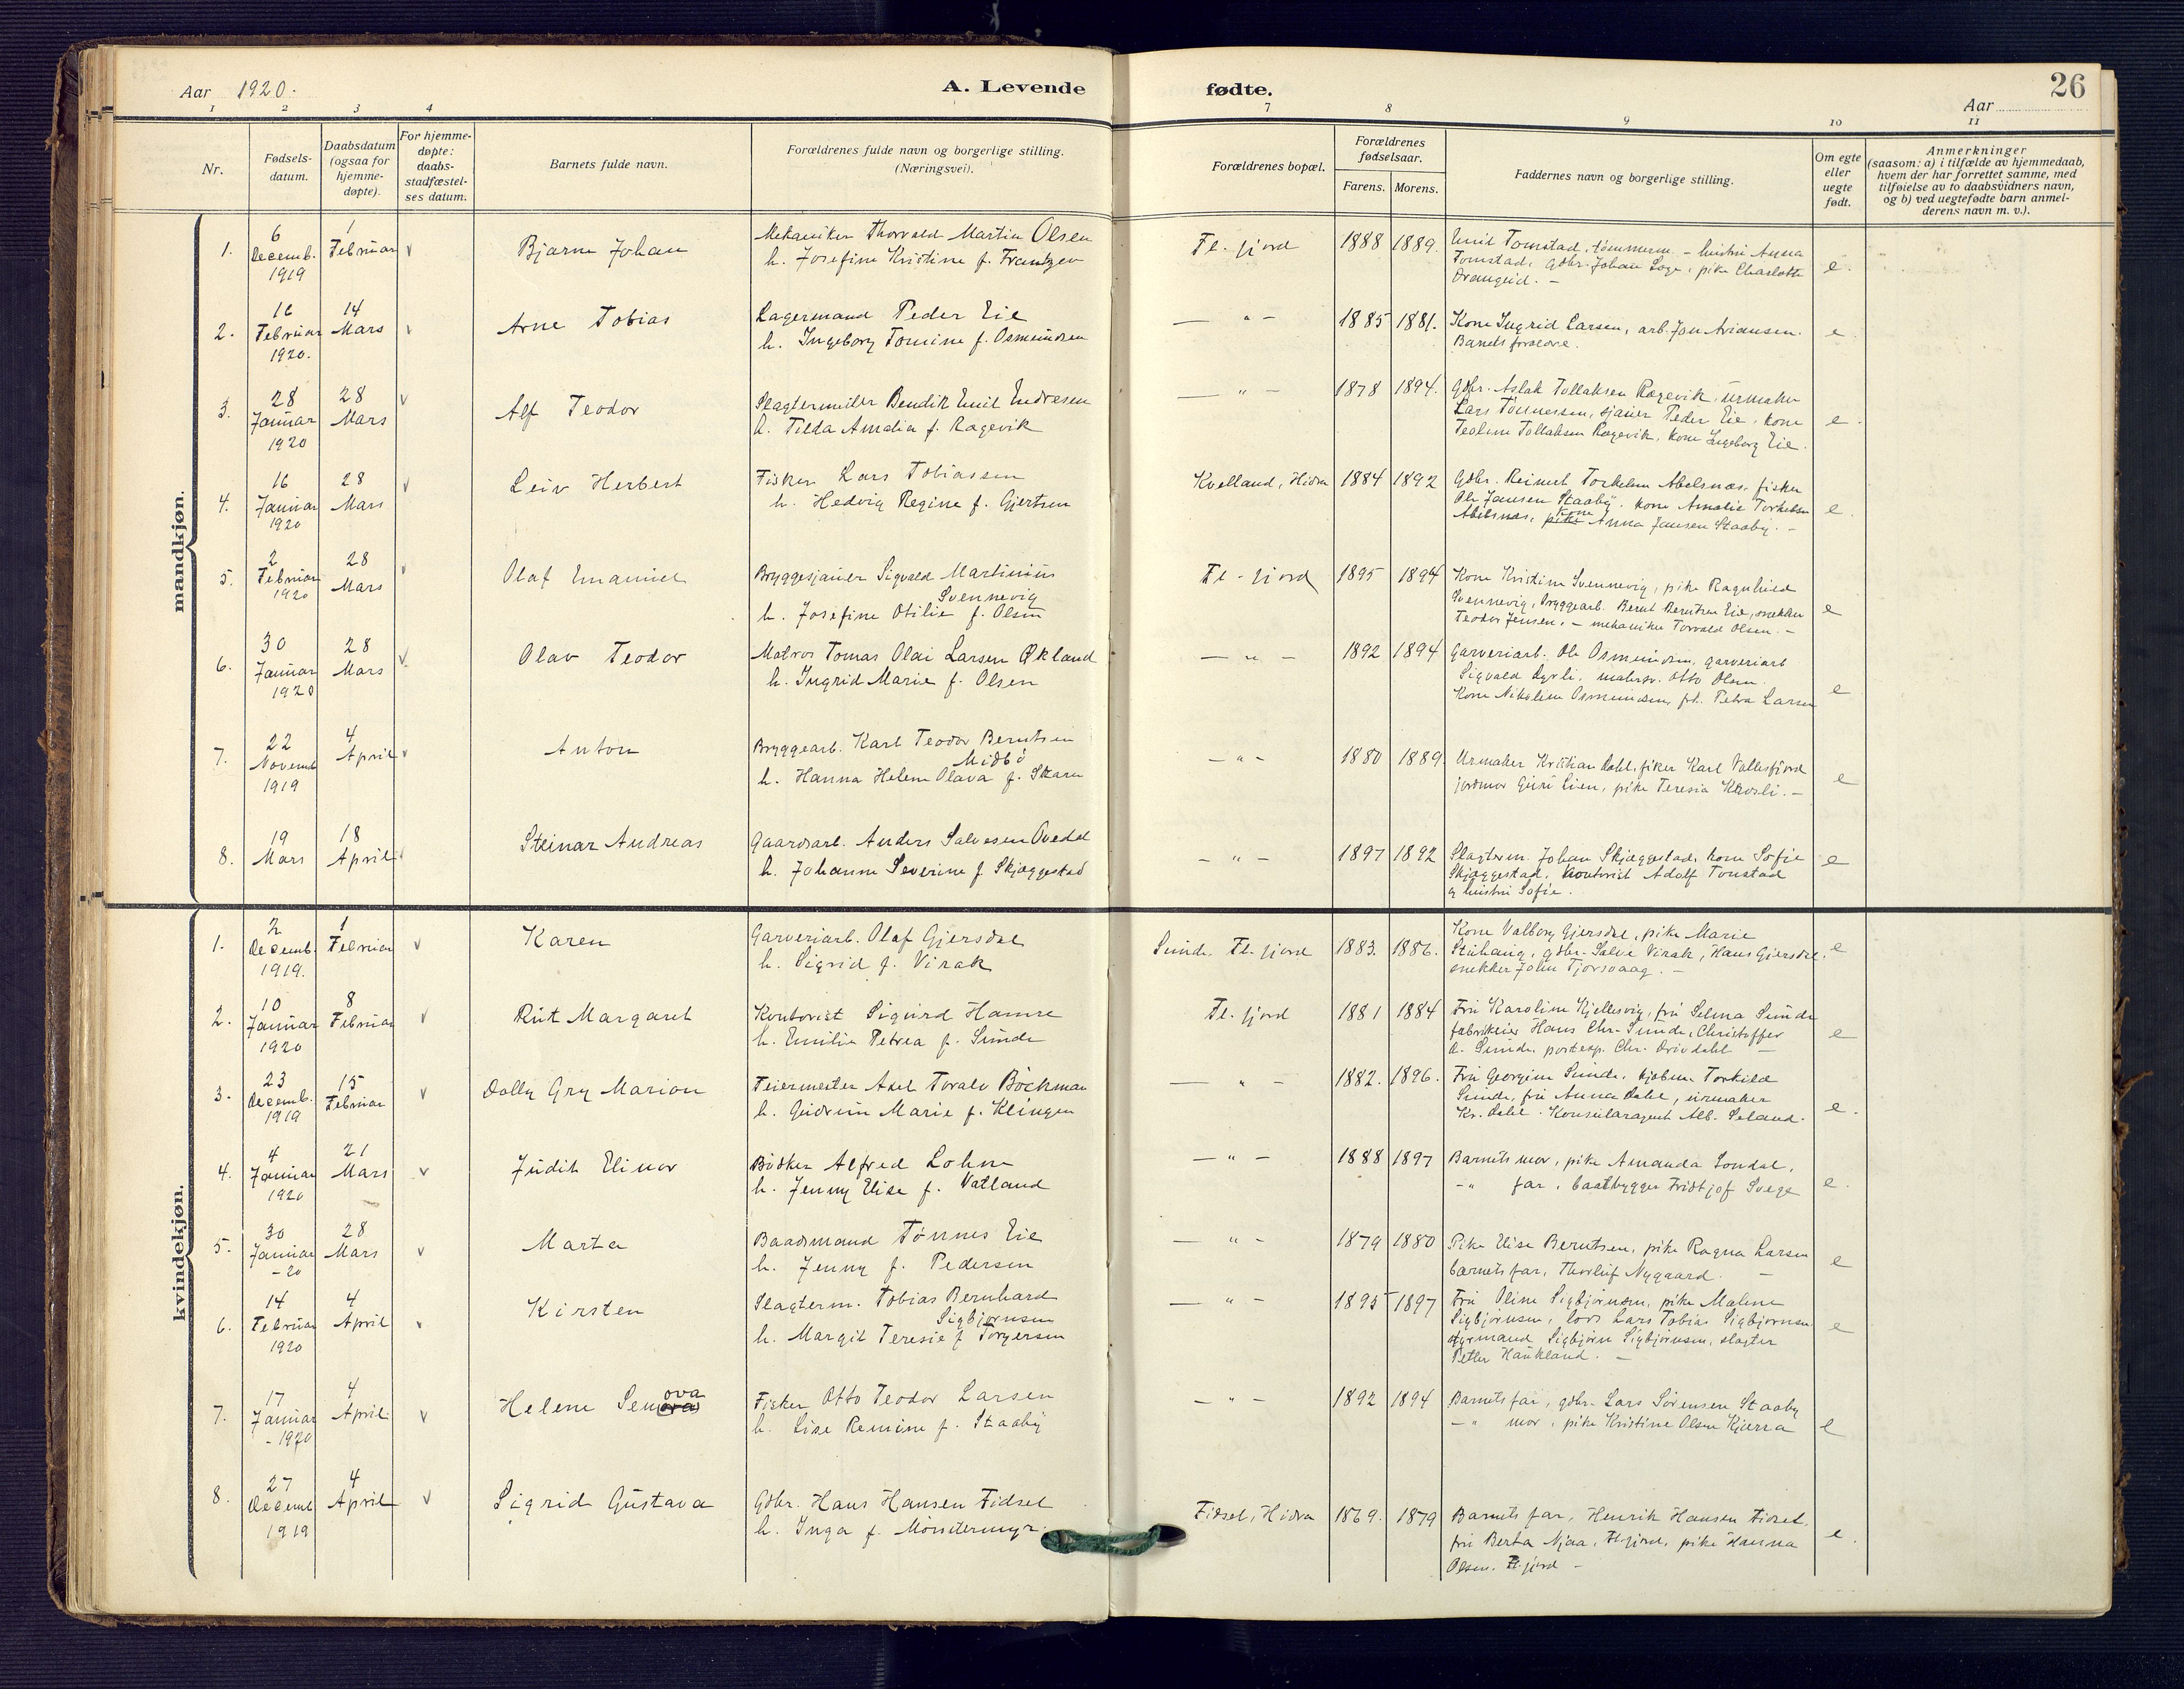 26
Aar 1920.
A. Levende fødte.
Aar
1 2 3 4 7 8 9 10 11
Nr.
Fødsels-
datum.
Daabsdatum
(ogsaa for
hjemme-
døpte).
For hjemme-
døpte:
daabs-
stadfæstel-
ses datum.
Barnets fulde navn.
Forældrenes fulde navn og borgerlige stilling.
(Næringsvei).
Forældrenes bopæl.
Forældrenes
fødselsaar.
Farens. Morens.
Faddernes navn og borgerlige stilling.
Om egte
eller
uegte
født.
Anmerkninger
(saasom: a) i tilfælde av hjemmedaab,
hvem der har forrettet samme, med
tilføielse av to daabsvidners navn,
og b) ved uegtefødte barn anmel-
derens navn m. v.).
mandkjøn.
1.
6
Decemb.
1919
1
Februar
Bjarne Johan
Mekaniker Thorvald Martin Olsen
h. Josefine Kristine f. Frantzen
Fl. fjord
1888 1889.
Emil Tomstad, tømmerm. - hustru Anna
Tomstad, gdbr. Johan Loge, pike Charlotte
Drangeid. -
e.
2.
16
Februar
1920.
14
Mars
Arne Tobias
Lagermand Peder Eie
h. Ingeborg Tomine f. Osmundsen
— " -
1885 1881.
Kone Ingrid Larsen, arb. Jon Ariansen.
Barnets forældre.
e.
3.
28
Januar
1920
28
Mars
Alf Teodor
Slagtermester Bendik Emil Endresen
h. Tilda Amalia f. Rægevik
— " -
1878 1894.
Gdbr. Aslak Tollaksen Rægevik, urmaker
Lars Tønnessen, sjauer Peder Eie, kone
Teoline Tollaksen Rægevik, kone Ingeborg Eie.
e.
4.
16
Januar
1920
28
Mars
Leiv Herbert
Fisker Lars Tobiassen
h. Hedvig Regine f. Gjertsen
Kvelland, Hidra
1884 1892
Gdbr. Reinert Torkelsen Abelsnæs, fisker
Ole Jansen Staaby, kone Amalie Torkelsen
Abelsnæs, pike kone Anna Jansen Staaby. -
e.
5.
2
Februar
1920
28
Mars
Olaf Emanuel
Bryggesjauer Sigvald Martinius
Svennevig
h. Josefine Otilie f. Olsen
Fl. fjord
1895 1894
Kone Kristine Svennevig, pike Ragnhild
Svennevig, bryggearb. Bernt Berntsen Eie, snekker
Teodor Jensen, - mekaniker Torvald Olsen. -
e
6.
30
Januar
1920
28
Mars
Olav Teodor
Matros Tomas Olai Larsen Økland
h. Ingrid Marie f. Olsen
— " -
1892 1894
Garveriarb. Ole Osmundsen, garveriarb
Sigvald Lyvli, malersv. Otto Olsen.
Kone Nikoline Osmundsen, frk. Petra Larsen
e
7.
22
Novemb
1919
4
April
Anton
Bryggearb. Karl Teodor Berntsen
Midbø
h. Hanna Helene Olava f. Skare
- " -
1880 1889.
Urmaker Kristian Dahl, fisker Karl Vollesfjord
jordmor Guri Lien, pike Teresia Kvosli. -
e
8.
19
Mars
18
April
Steinar Andreas
Gaardsarb. Anders Salvesen Ovedal
h. Johanne Severine f. Skjæggestad
- " -
1897 1892
Slagterm. Johan Skjæggestad, kone Sofie
Skjæggestad, kontorist Adolf Tonstad
og hustru Sofie.
e
kvindekjøn.
1.
2
Decemb.
1919.
1
Februar
Karen
Garveriarb. Olaf Gjersdal
h. Sigrid f. Virak
Sunde, Fl. fjord
1883. 1886.
Kone Valborg Gjersdal, pike Marie
Stuhaug, gdbr. Salve Virak, Hans Gjersdal,
snekker John Tjorsvaag. -
e
2.
10
Januar
1920
8
Februar
Rut Margaret
Kontorist Sigurd Hamre
h. Emilie Petrea f. Sunde
Fl. fjord
1881 1884
Fru Karoline Kjellesvig, fru Selma Sunde
fabrikeier Hans Chr. Sunde, Christoffer
A. Sunde, postexp. Chr. Drivdahl -
e
3.
23
Decemb.
1919
15
Februar
Dolly Gry Marion
Feiermester Axel Toralv Böckman
h. Gudrun Marie f. Klingen
— " -
1882. 1896.
Fru Georgine Sunde, kjøbm. Torkild
Sunde, fru Anna Dahl, urmaker
Kr. Dahl. Konsularagent Alb. Seland.
e.
4.
4
Januar
1920
21
Mars
Judith Elinor
Bødker Alfred Lohne
h. Jenny Elise f. Vatland
- " -
1888 1897
Barnets mor, pike Amanda Londal,
-" far, baatbygger Fridtjof Svege
e.
5.
30
Januar
-20
28
Mars
Marta
Baadsmand Tønnes Eie
h. Jenny f. Pedersen
— " -
1879 1880
Pike Elise Berntsen, pike Ragna Larsen
barnets far, Thorleif Nygaard. -
e
6.
14
Februar
1920
4
April
Kirsten
Slagterm. Tobias Bernhard
Sigbjørnsen
h. Margit Teresie f. Torgersen
— " -
1895 1897
Fru Oline Sigbjørnsen, pike Malene
Sigbjørnsen, lods Lars Tobias Sigbjørnsen
styrmand Sigbjørn Sigbjørnsen, slagter
Petter Haukland. -
e
7.
17
Januar
-1920
4
April
Helene Senova
Fisker Otto Teodor Larsen
h. Lise Remine f. Staaby
- " -
1892 1894
Barnets far, gdbr. Lars Sørensen Staaby
-" mor, pike Kristine Olsen Kjerra
e
8.
27
Decemb
1919
4
April
Sigrid Gustava
Gdbr. Hans Hansen Fidsel
h. Inga f. Mønstermyr.
Fidsel, Hidra
1869. 1879
Barnets far, Henrik Hansen Fidsel,
fru Berta Njaa, Fl.fjord, pike Hanna
Olsen. Fl.fjord -
e.